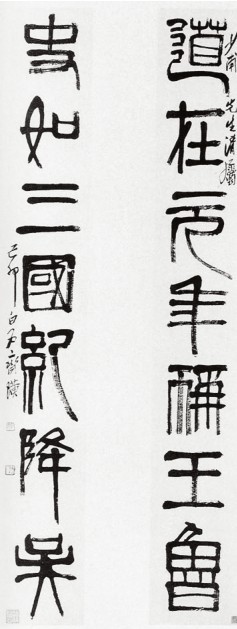 少甫先生清屬
道在元年稱王魯
史如三國紀降吳
己卯白石齊璜